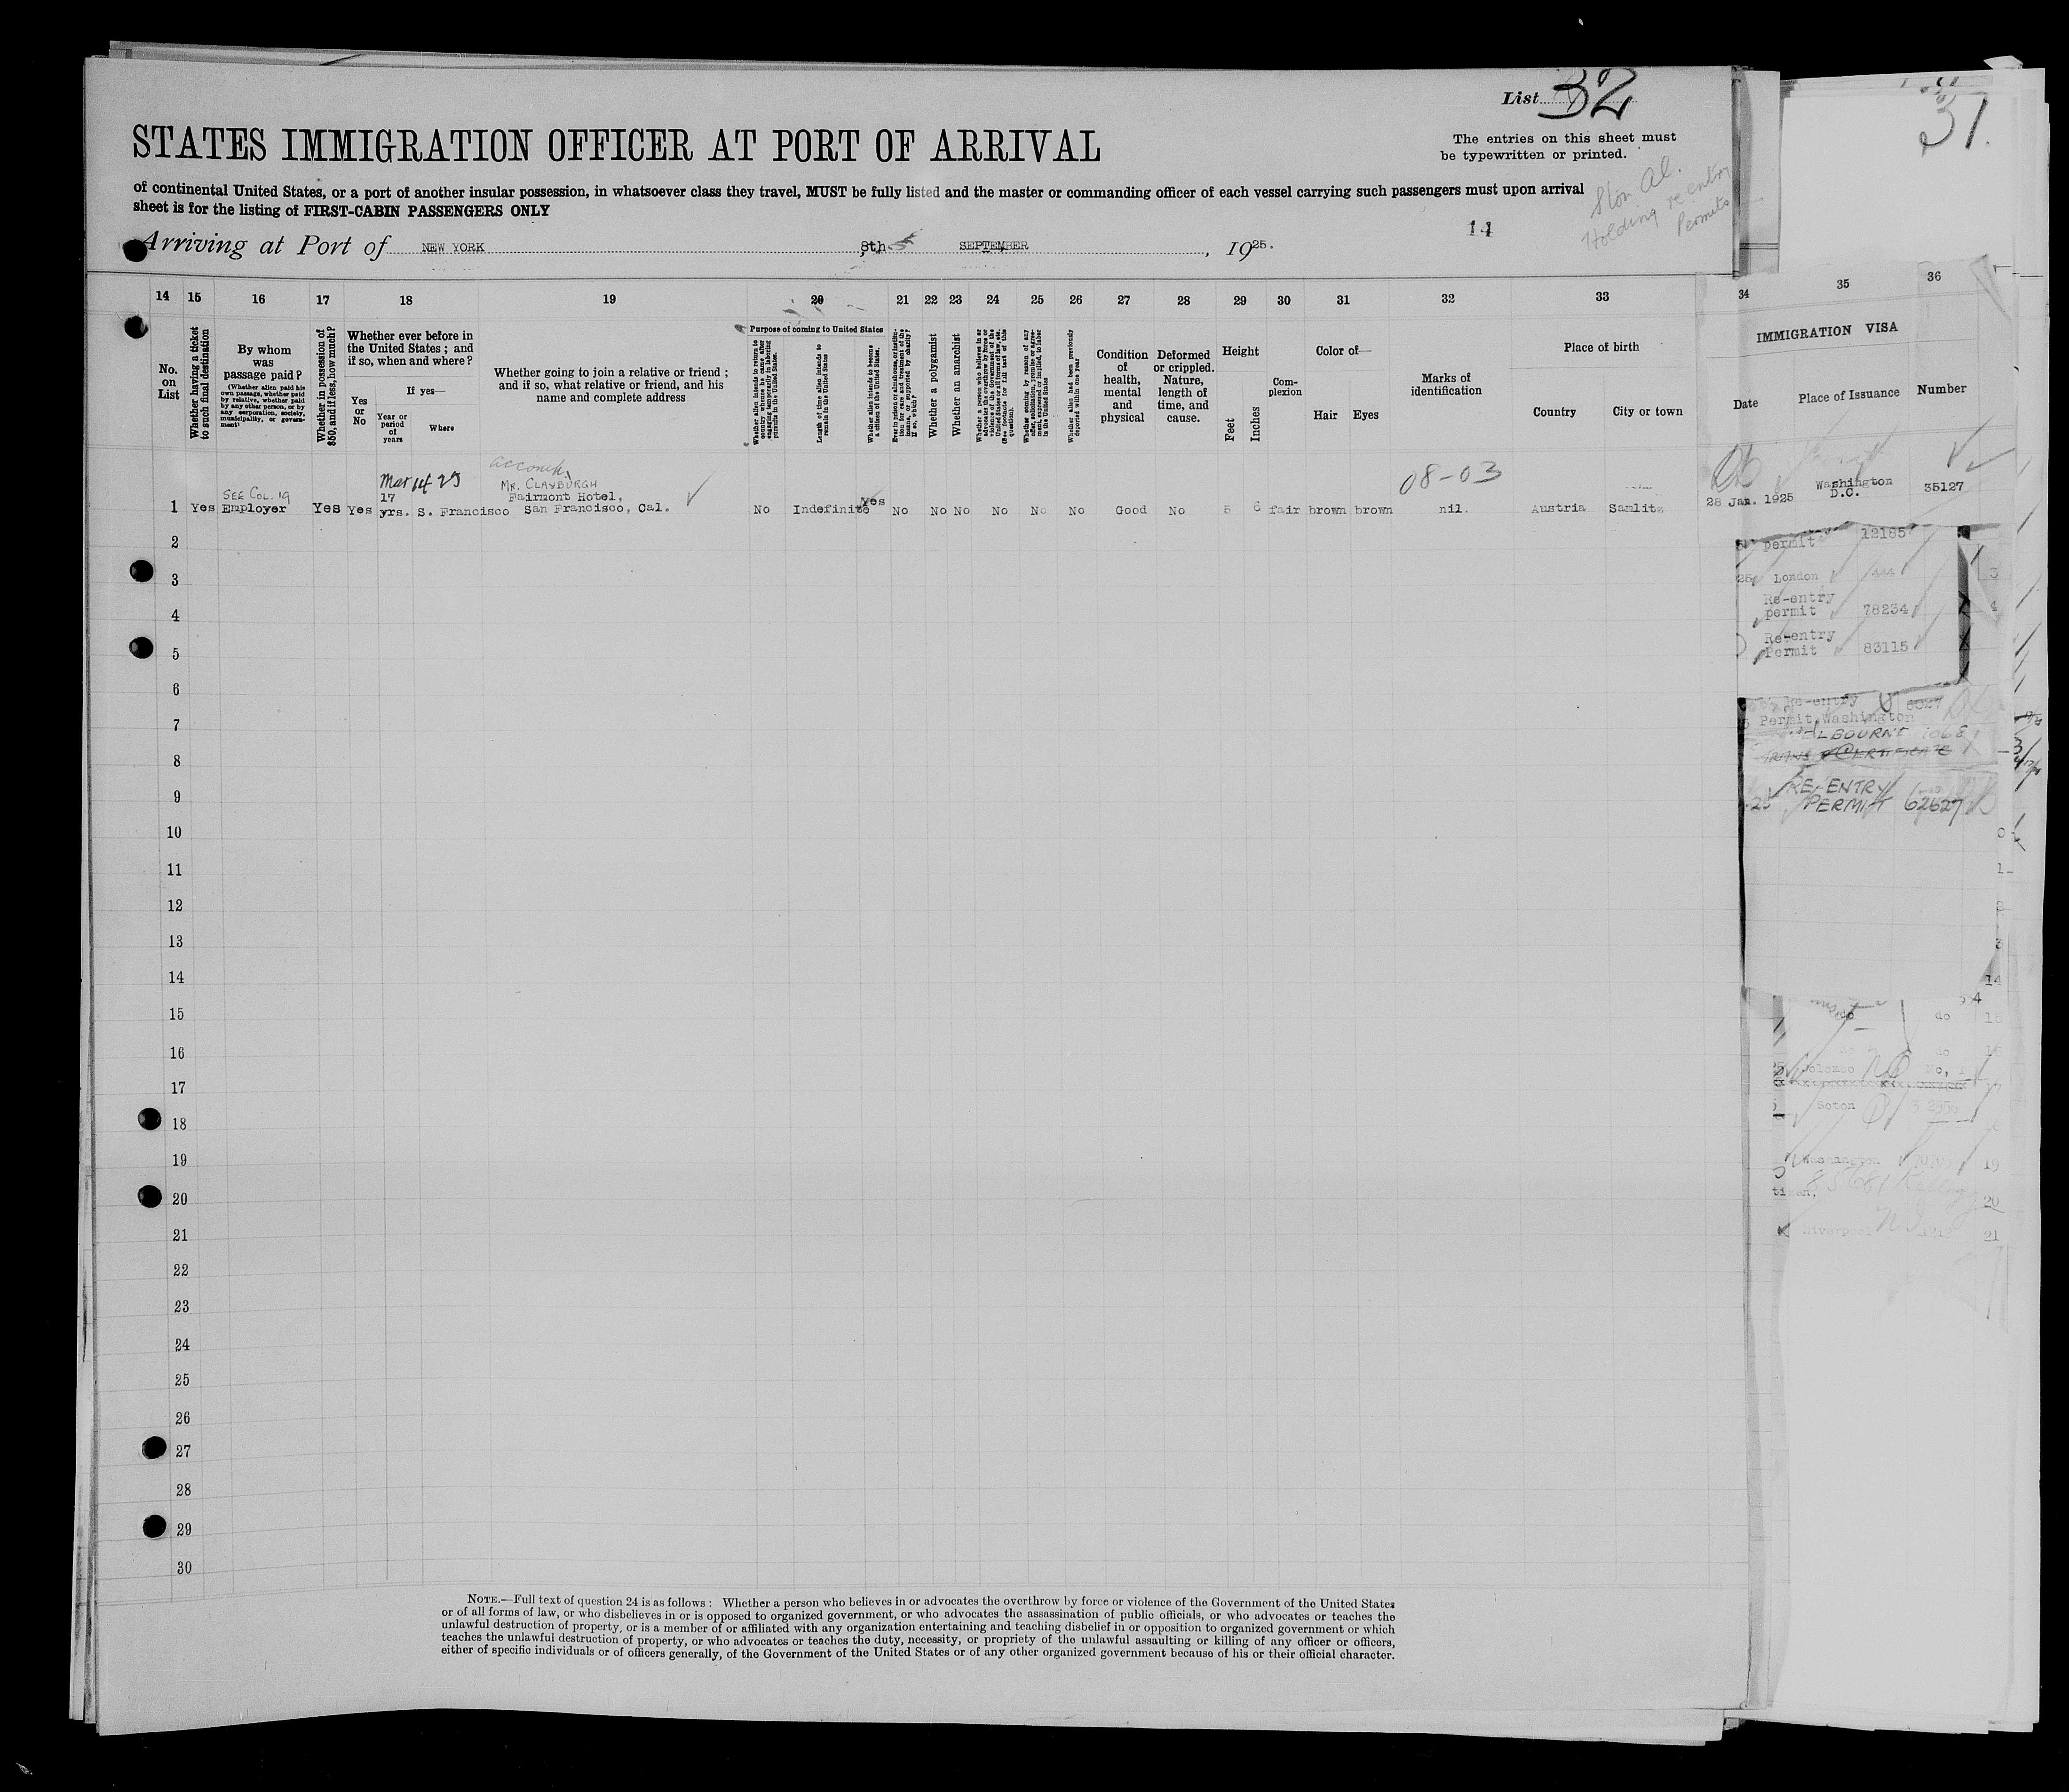 List 32
31.
STATES IMMIGRATION OFFICER AT PORT OF ARRIVAL
The entries on this sheet must
be typewritten or printed.
of continental United States, or a port of another insular possession, in whatsoever class they travel, MUST be fully listed and the master or commanding officer of each vessel carrying such passengers must upon arrival
sheet is for the listing of FIRST-CABIN PASSENGERS ONLY
Holding re entry
Permits
14
Arriving at Port of NEW YORK, 8th SEPTEMBER, 1925.
14 15 16 17 18 19 20 21 22 23 24 25 26 27 28 29 30 31 32 33 34 35 36
No. on List
Whether having a ticket to such final destination
By whom was passage paid?
(Whether alien paid his own passage, whether paid by relative, whether paid by any other person, or by any corporation, society, municipality, or government)
Whether in possession of $50, and if less, how much?
Whether ever before in the United States; and if so, when and where?
Yes or No
If yes—
Year or period of years
Where
Whether going to join a relative or friend; and if so, what relative or friend, and his name and complete address
Purpose of coming to United States
Whether alien intends to return to country whence he came after engaging temporarily in laboring pursuits in the United States.
Length of time alien intends to remain in the United States
Whether alien intends to become a citizen of the United States.
Ever in prison or almshouse, or institution for care and treatment of the insane, or supported by charity? If so, which?
Whether a polygamist
Whether an anarchist
Whether a person who believes in or advocates the overthrow by force or violence of the Government of the United States or all forms of law, etc. (See footnote for full text of this question).
Whether coming by reason of any offer, solicitation, promise or agreement, expressed or implied, to labor in the United States
Whether alien had been previously deported within one year
Condition of health, mental and physical
Deformed or crippled. Nature, length of time, and cause.
Height
Feet
Inches
Complexion
Color of—
Hair
Eyes
Marks of identification
Place of birth
Country
City or town
IMMIGRATION VISA
Date
Place of Issuance
Number
Mar 14 23
SEE COL. 19
MR. CLAYBURGH
08-03
1 Yes Employer Yes Yes 17 yrs. S. Francisco Fairmont Hotel, San Francisco, Cal. No Indefinite Yes No No No No No No Good No 5 6 fair brown brown nil. Austria Samlitz 28 Jan. 1925 Washington D.C. 35127
2
3
4
5
6
7
8
9
10
11
12
13
14
15
16
17
18
19
20
21
22
23
24
25
26
27
28
29
30
permit 12185
London
Re-entry
permit 78234
Re-entry
Permit 83115
Re-entry
Permit Washington
RE-ENTRY
PERMIT 62627
do
do
Soton
Washington
Liverpool
19
20
21
NOTE.—Full text of question 24 is as follows: Whether a person who believes in or advocates the overthrow by force or violence of the Government of the United States
or of all forms of law, or who disbelieves in or is opposed to organized government, or who advocates the assassination of public officials, or who advocates or teaches the
unlawful destruction of property, or is a member of or affiliated with any organization entertaining and teaching disbelief in or opposition to organized government or which
teaches the unlawful destruction of property, or who advocates or teaches the duty, necessity, or propriety of the unlawful assaulting or killing of any officer or officers,
either of specific individuals or of officers generally, of the Government of the United States or of any other organized government because of his or their official character.